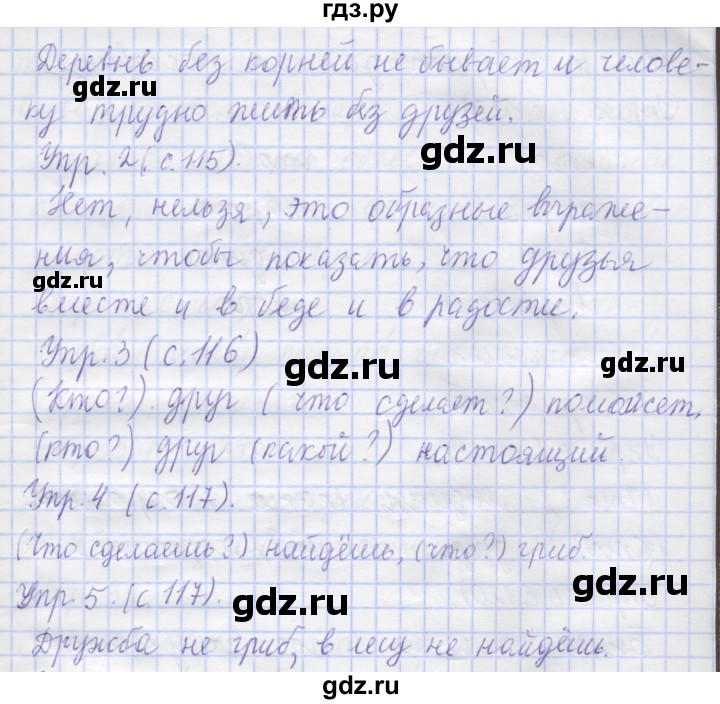 гдз.ру
Деревьв без корней не бывает и челове-
ку трудно жить без друзей.
gdz.ru
Упр. 2 (с. 115).
gdz.ru
Нет, нельзя, это образные выраже-
ния, чтобы показать, что друзья
gdz.ru
вместе и в беде и в радости.
Упр. 3 (с. 116)
gdz.ru
gdz.ru
(Кто?) друг (что сделает?) поможет,
(кто?) друг (какой?) настоящий.
gdz.ru
Упр. 4 (с. 117).
gdz.ru
(Что сделаешь?) найдёшь, (что?) гриб.
Упр. 5. (с. 117).
gdz.ru
gdz.ru
Дружба не гриб, в лесу не найдёшь.
gdz.ru